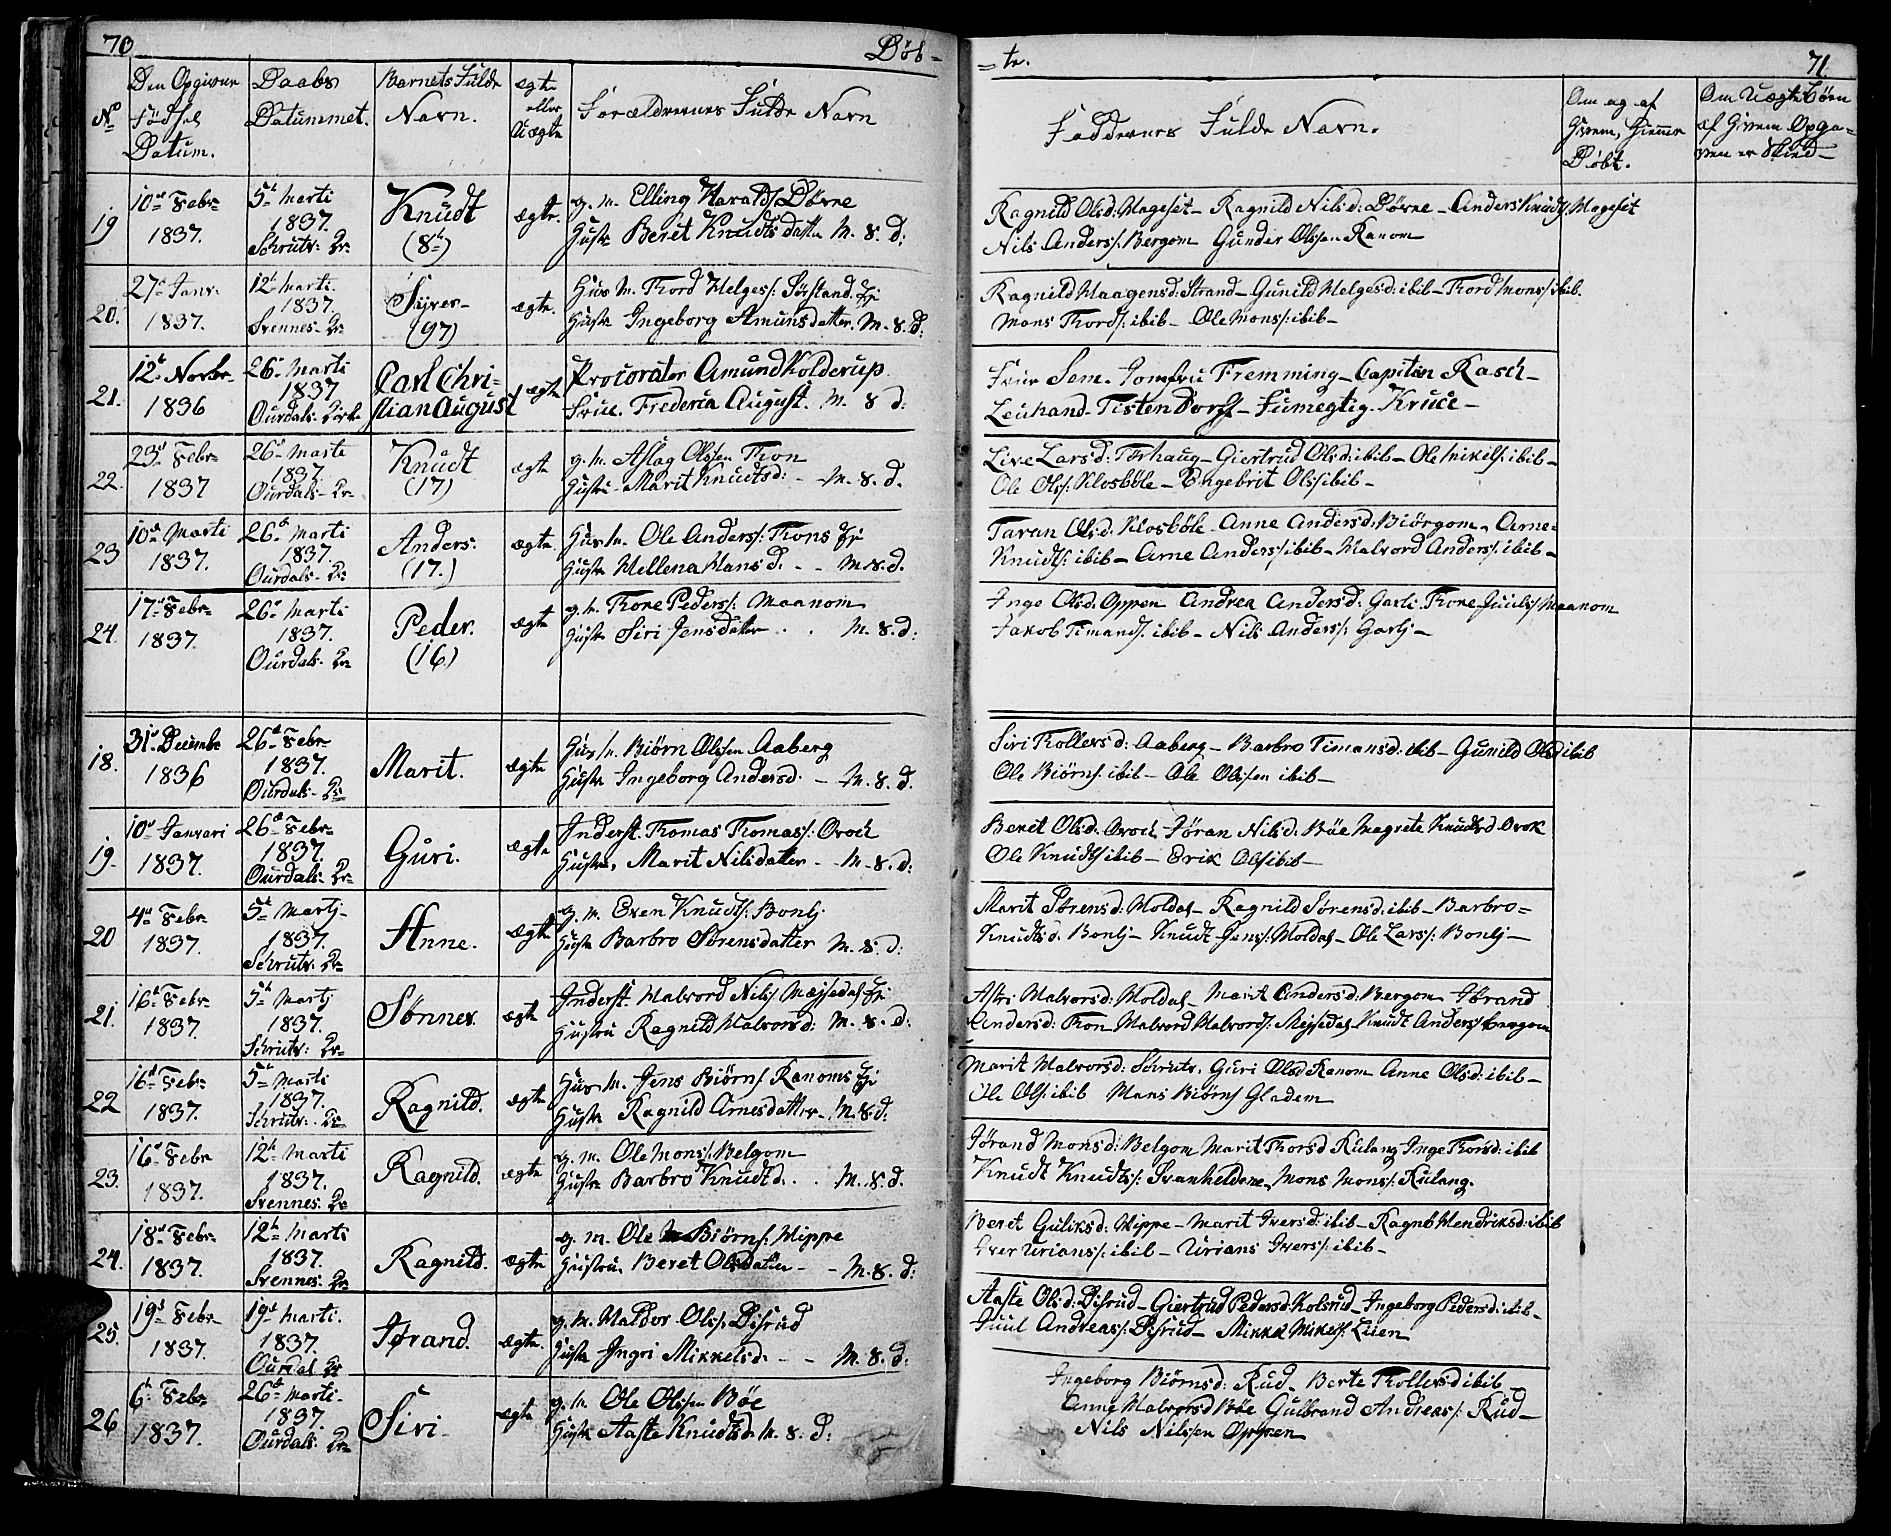 70 Døb-
No
Den Opgivne
Fødsels
Datum.
Daabs
Datummet.
Barnets Fulde
Navn.
ægte
eller
Uægte
Forældrenes Fulde Navn
19
10de Febr
1837.
5te Marti
1837.
Schrutv: Kr
Knudt
(8te)
ægte.
g. m. Elling Haralds: Børne
Hustr Beret Knudtsdatter M. 8. d:
20.
27de Janv.
1837.
12te Marti.
1837.
Svennes- Kr
Siver-
(97)
ægte.
Hus M. Thord Helges/: Sørstand. Ei
Hustr Ingeborg Amunsdatter. M. 8. d:
21.
12te Novbr-
1836
26de Marti
1837
Ourdals- Kirk
Carl Chri-
stian August
ægte
Procorator Amund Kolderup.
Frue. Frederica August. M. 8 d:
22.
23de Febr
1837
26de Marti
1837.
Ourdals- Kr
Knudt
(17)
ægte
g. M. Aslag Olssen Thon
Hustru Marit Knudtsd: - M. 8. d.
23
10de Marti
1837.
26de Marti
1837.
Ourdals- Kr
Anders:
(17.)
ægte
Hus M. Ole Anders/: Thons Ei
Hustr Hellena Hans d. - - M. 8. d.
24.
17de Febr
1837.
26de Marti
1837.
Ourdals- Kr
Peder.
(16)
ægte
g. M. Thore Peders/: Maanom
Hustr Siri Jensdatter . . M. 8. d:
18.
31te Decembr
1836
26de Febr
1837.
Ourdals- Kr
Marit.
ægte
Hus M. Biørn Olssen Aaberg
Hustr Ingeborg Andersd. - M. 8. d.
19.
10de Janvari
1837.
26de Febr
1837.
Ourdals- Kr
Guri.
ægte
Inderst. Thomas Thomas/: Qvock
Hustru, Marit Nilsdatter - M. 8. d:
20
4de Febr
1837.
5te Martj-
1837.
Schrutv. Kr
Anne.
ægte
g. M. Even Knudts/: Bonlj
Hustr Barbro Sørensdatter M. 8. d:
21.
16de Febr
1837.
5te Martj
1837.
Schrutv: Kr
Sønnev.
ægte
Inderst. Halvord Nils/ Møssedal Ei
Hustru Ragnild Halvorsd: M. 8. d:
22
16de Febr
1837.
5te Marti
1837.
Schrutv. Kr
Ragnild.
ægte
Hus M. Jens Biørns/ Ranoms Ei
Hustr Ragnild Arnesdatter. M. 8. d:
23.
16de Febr
1837.
12te Marti
1837.
Svennes. Kr
Ragnild.
ægte
g. M. Ole Mons/: Belgom
Hustr Barbro Knudtd. . . M. 8. d.
24.
18de Febr
1837.
12te Marti
1837.
Svennes: Kr
Ragnild.
ægte
g. m. Ole Biørns/: Hippe
Hustru. Beret Olsdatter - - M. 8. d:
25.
19de Febr
1837.
19de Marti.
1837.
Ourdal Kr
Jørand.
ægte.
g. M. Haldor Ols/: Disrud
Hustr Ingri Mikkelsd. - - M. 8. d:
26
6te Febr
1837.
26de Marti-
1837.
Ourdals- Kr
Siri.
ægte
g. M. Ole Olssen Bøe
Hustr Aaste Knudtsd. M. 8. d:
-te. 71.
Faddernes Fulde Navn.
Om og af
Hvem, Hiemme
Døbt.
Om Uægte Børn
af Hvem Opga-
ven er Skied-
Ragnild Olsd: Hageset- Ragnild Nilsd: Børne- Anders Knudts/ Hageset
Nils Anders/: Bergom Gunder Olssen Ranom
Ragnild Haagensd: Strand- Gunild Helgesd: ibib- Thord Mons/ ibib.
Mons Thords/: ibib- Ole Mons/: ibib-
Frue Sem. Jomfru Fremming- Capitein Rasch-
Leuhand- Tistendorff- Fuldmegtig- Kruce-
Live Larsd: Torhaug- Giertrud Olsd: ibib- Ole Mikils/: ibib-
Ole Ols/: Klosbøle- Engebrit Ols/ ibib-
Taran Olsd. Klosbøle- Anne Andersd: Biørgom- Arne-
Knudts/: ibib- Arne Anders/ ibib- Halvord Anders/: ibib-
Inge Olsd. Oppen Andrea Andersd: Garli. Thore Juuls/ Maanom
Jakob Timands/: ibib- Nils Anders/: Garlj-
Siri Thollevsd: Aaberg- Barbro Timansd: ibib- Gunild Olsd ibib
Ole Biørns/: ibib- Ole Olssen ibib-
Berit Olsd. Qvock Jøran Nilsd. Bøe Magrete Knudtsd Qvok
Ole Knudts/ ibib- Erik Ols/ ibib-
Marit Sørensd: Moldal- Ragnild Sørensd: ibib- Barbro-
Knudtsd. Bonlj- Knudt Jens/: Moldal- Ole Lars/: Bonlj-
Astri Halvorsd: Moldal- Marit Andersd: Bergom Jørand
Andersd: Thon Halvord Halvords/: Møssedal Knudt Anders/ Bergom
Marit Halvorsd: Schrutv. Guri Olsd Ranom Anne Olsd: ibib-
Ole Ols/: ibib Hans Biørns/ Gladem
Jørand Monsd: Belgom Marit Thorsd Kulang Inge Thorsd: ibib
Knudt Knudts/: Svanheldene, Mons Mons/: Kulang.
Beret Guliksd: Hippe- Marit Iversd: ibib- Ragnb Hendriksd: ibib
Iver Urians/: ibib- Urians Ivers/: ibib-
Aaste Olsd: Disrud- Giertrud Pedersd: Kolsrud- Ingeborg Pedersd: ibib-
Juul Andreas/: Disrud- Mikkel Mikels/: Lien
Ingeborg Biørnsd: Rud- Berte Thollevsd ibib-
Anne Halvorsd Bøe Gulbrand Andreas/: Rud-
Nils Nilssen Oppen